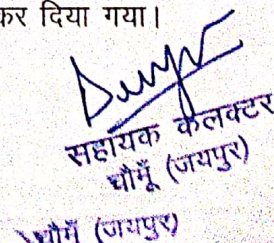 कर दिया गया।
सहायक कलक्टर
चौमूँ (जयपुर)
चौमूँ (जयपुर)